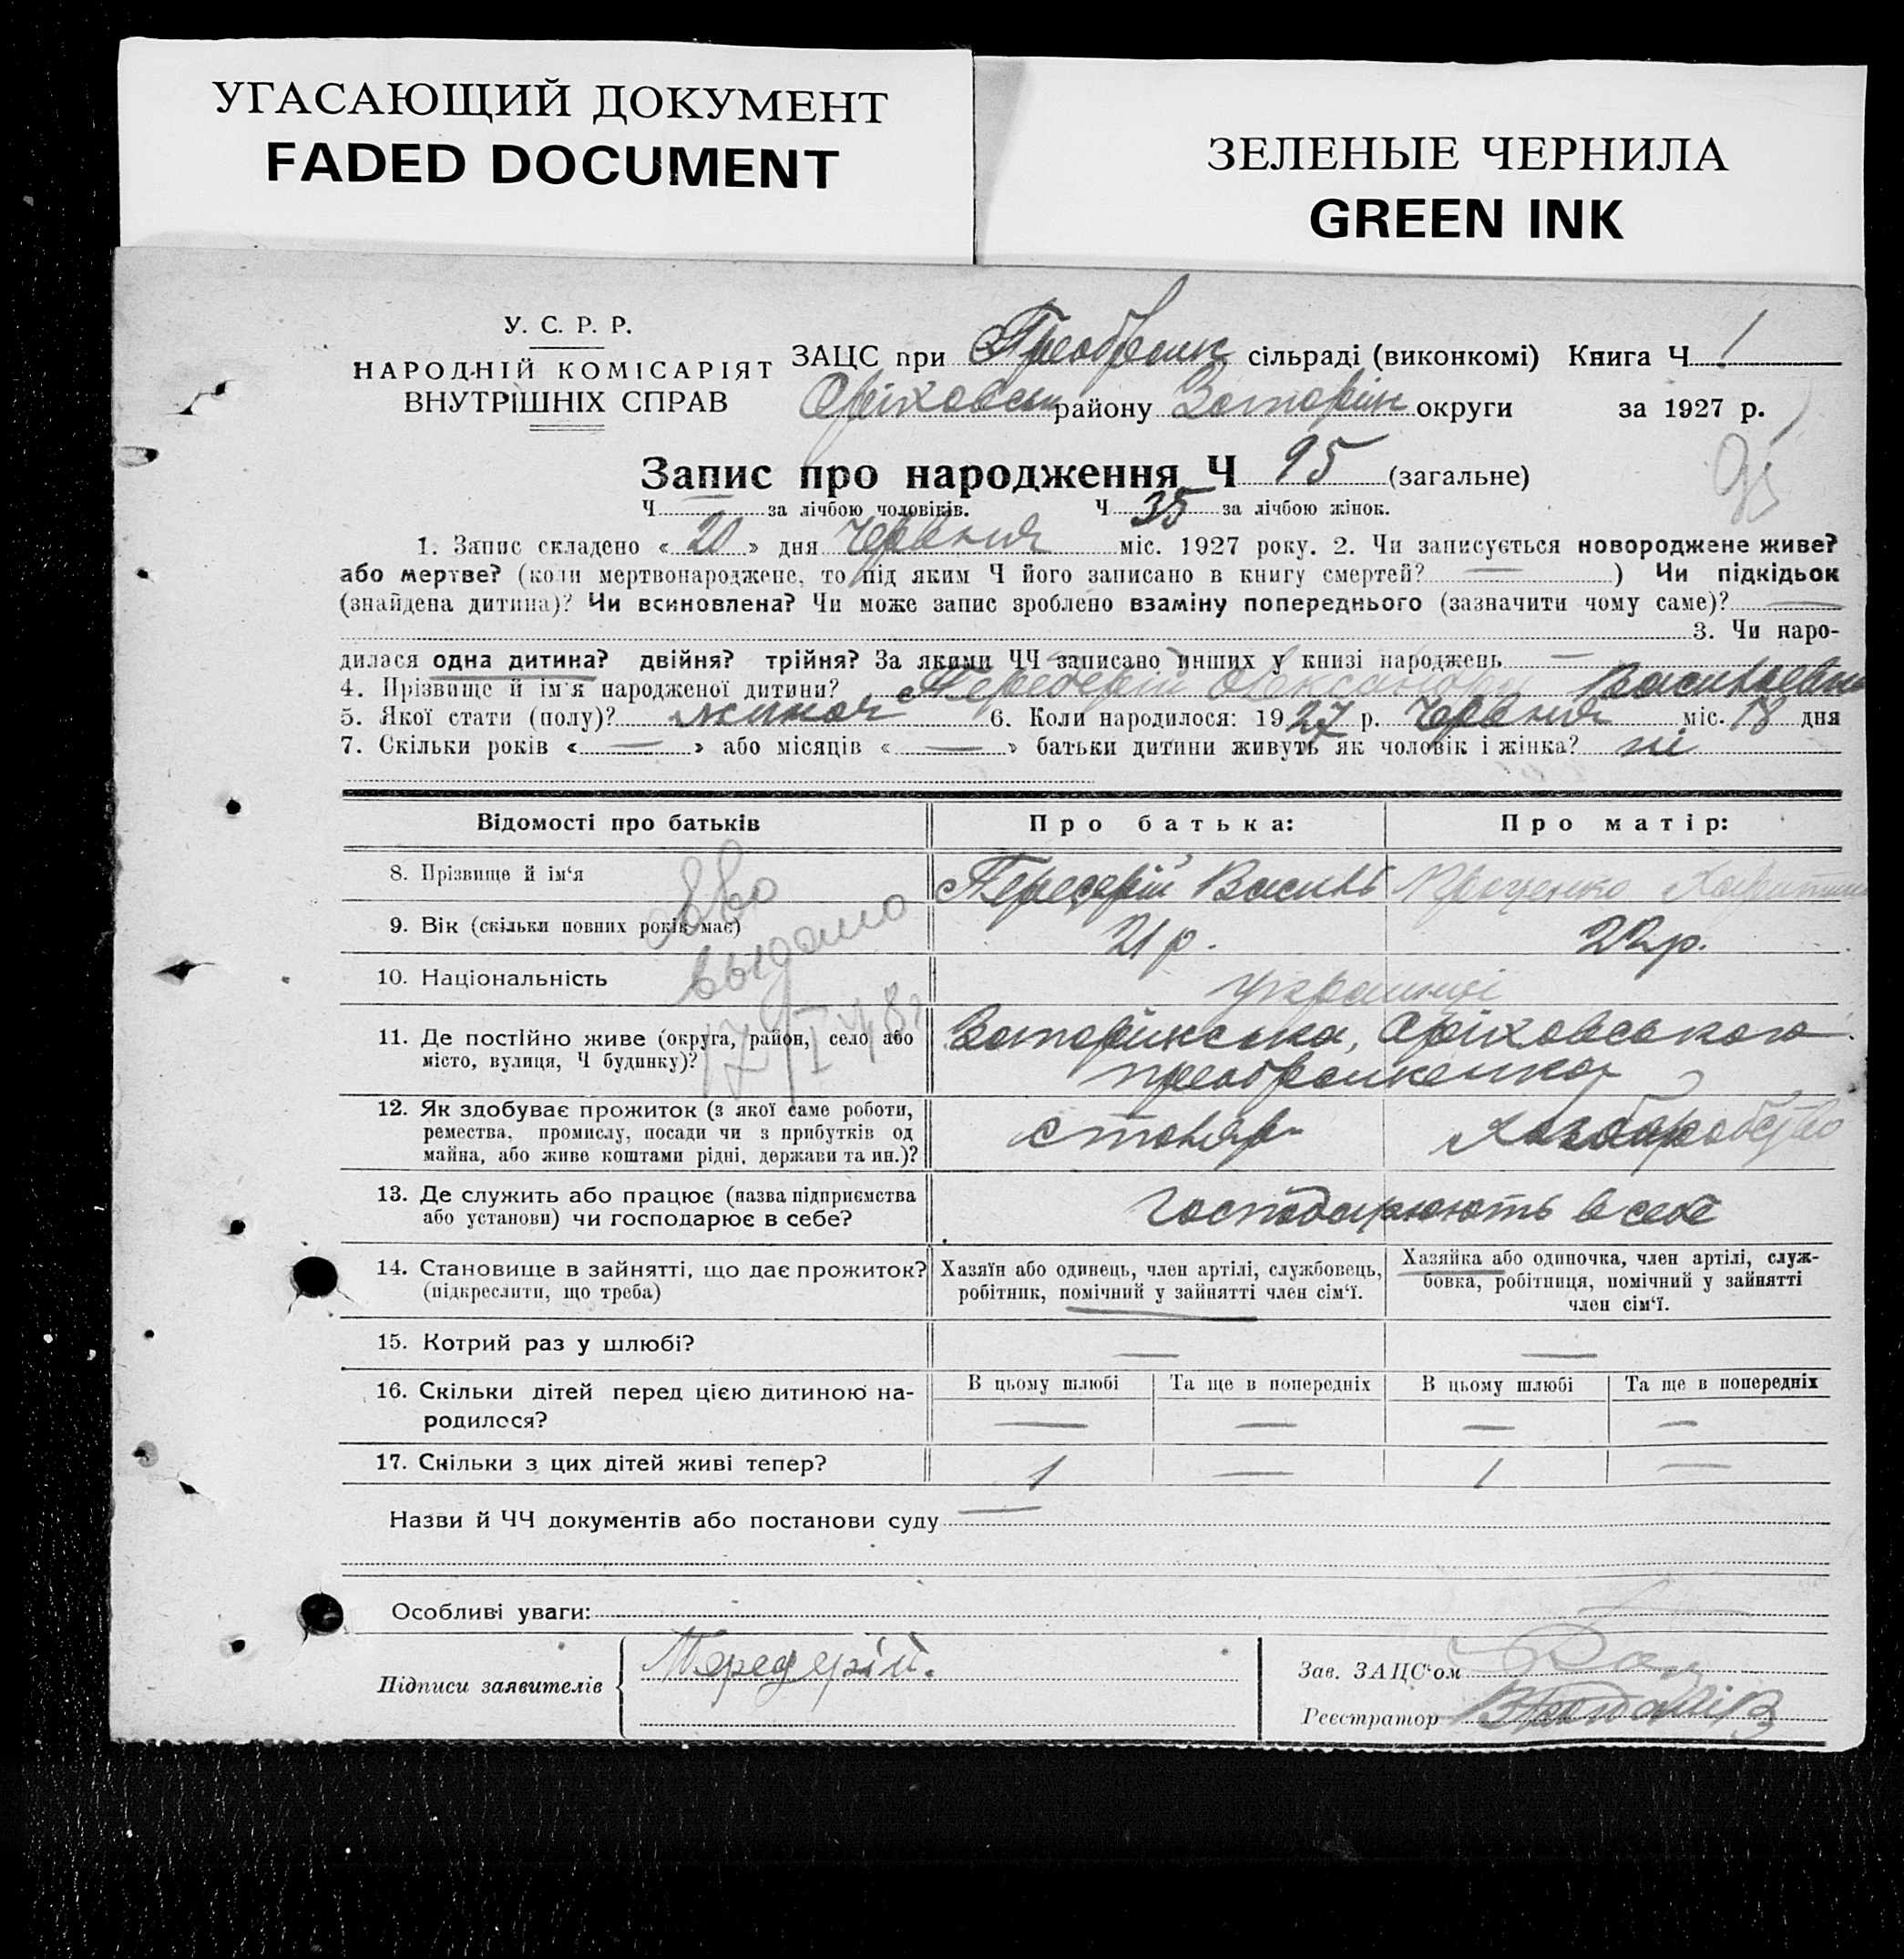 УГАСАЮЩИЙ ДОКУМЕНТ
FADED DOCUMENT
ЗЕЛЕНЫЕ ЧЕРНИЛА
GREEN INK
У. С. Р. Р.
НАРОДНІЙ КОМІСАРІЯТ
ВНУТРІШНІХ СПРАВ
ЗАЦС при Преображ сільраді (виконкомі) Книга Ч 1
Оріховськ району Запоріж округи за 1927 р.
95
Запис про народження Ч 95 (загальне)
Ч — за лічбою чоловіків. Ч 35 за лічбою жінок.
1. Запис складено « 20 » дня Червня міс. 1927 року. 2. Чи записується новороджене живе?
або мертве? (коли мертвонароджене, то під яким Ч його записано в книгу смертей? — ) Чи підкідьок
(знайдена дитина)? Чи всиновлена? Чи може запис зроблено взаміну попереднього (зазначити чому саме)? —
3. Чи наро-
дилася одна дитина? двійня? трійня? За якими ЧЧ записано инших у книзі народжень —
4. Прізвище й ім'я народженої дитини? Передерій Олександра Васильевна
5. Якої стати (полу)? жиноч 6. Коли народилося: 1927 р. Червня міс. 18 дня
7. Скільки років « — » або місяців « — » батьки дитини живуть як чоловік і жінка? ні
Відомості про батьків Про батька: Про матір:
8. Прізвище й ім'я Передерій Василь Проценко
9. Вік (скільки повних років має) 21 р. 22 р.
10. Національність українці
выдано
11. Де постійно живе (округа, район, село або
місто, вулиця, Ч будинку)?
Запоріжська, Оріховського
Преображенка
12. Як здобуває прожиток (з якої саме роботи,
ремества, промислу, посади чи з прибутків од
майна, або живе коштами рідні, держави та ин.)?
столяр хліборобство
13. Де служить або працює (назва підприємства
або установи) чи господарює в себе?
Господарюють в себе
14. Становище в зайнятті, що дає прожиток?
(підкреслити, що треба)
Хазяїн або одинець, член артілі, службовець,
робітник, помічний у зайнятті член сім'ї.
Хазяйка або одиночка, член артілі, служ-
бовка, робітниця, помічний у зайнятті
член сім'ї.
15. Котрий раз у шлюбі? — —
16. Скільки дітей перед цією дитиною на-
родилося?
В цьому шлюбі Та ще в попередніх В цьому шлюбі Та ще в попередніх
— — — —
17. Скільки з цих дітей живі тепер? 1 — 1 —
Назви й ЧЧ документів або постанови суду —
Особливі уваги:
Підписи заявителів Передерій.
Зав. ЗАЦС'ом
Реєстратор